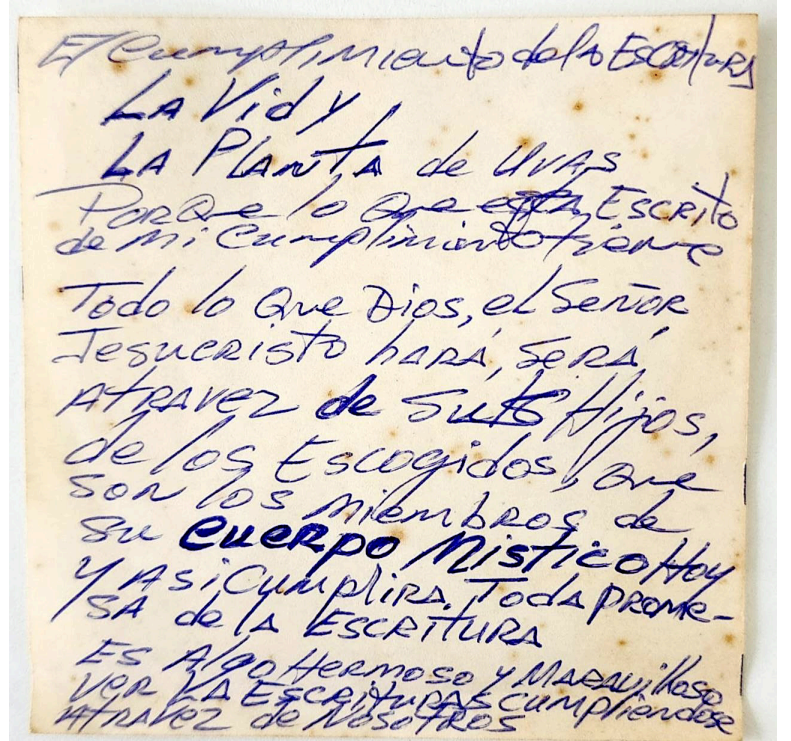 El Cumplimiento de la ESCRitURA
LA Vid Y
LA PLANTA de UVAS
PORQue lo Que está ESCRito
de mi Cumplimiento tiene
Todo lo Que Dios, el SeñoR
JesucRisto haRÁ, SeRÁ,
AtRAvez de Sus Hijos,
de los Escogidos, Que
SoN los miembRos de
Su CueRpo Mistico Hoy
Y ASi CumpliRA TodA pRome-
SA de la ESCRITURA
ES Algo HeRmoso y MARAvilloso
VeR LA EscRituRAS cumpliendose
AtRAvez de NosotRos